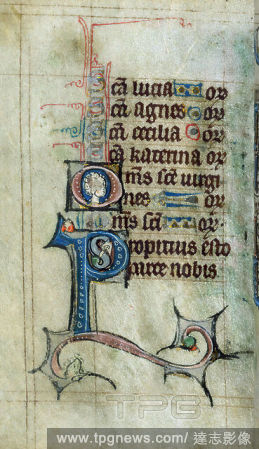 cā lucia or
cā agnes or
cā cecilia or
cā katerina or
Omīs scē virgi
nes or
Omīs scī or
Propitius esto
parce nobis
TPG
www.tpgnews.com/ 達志影像